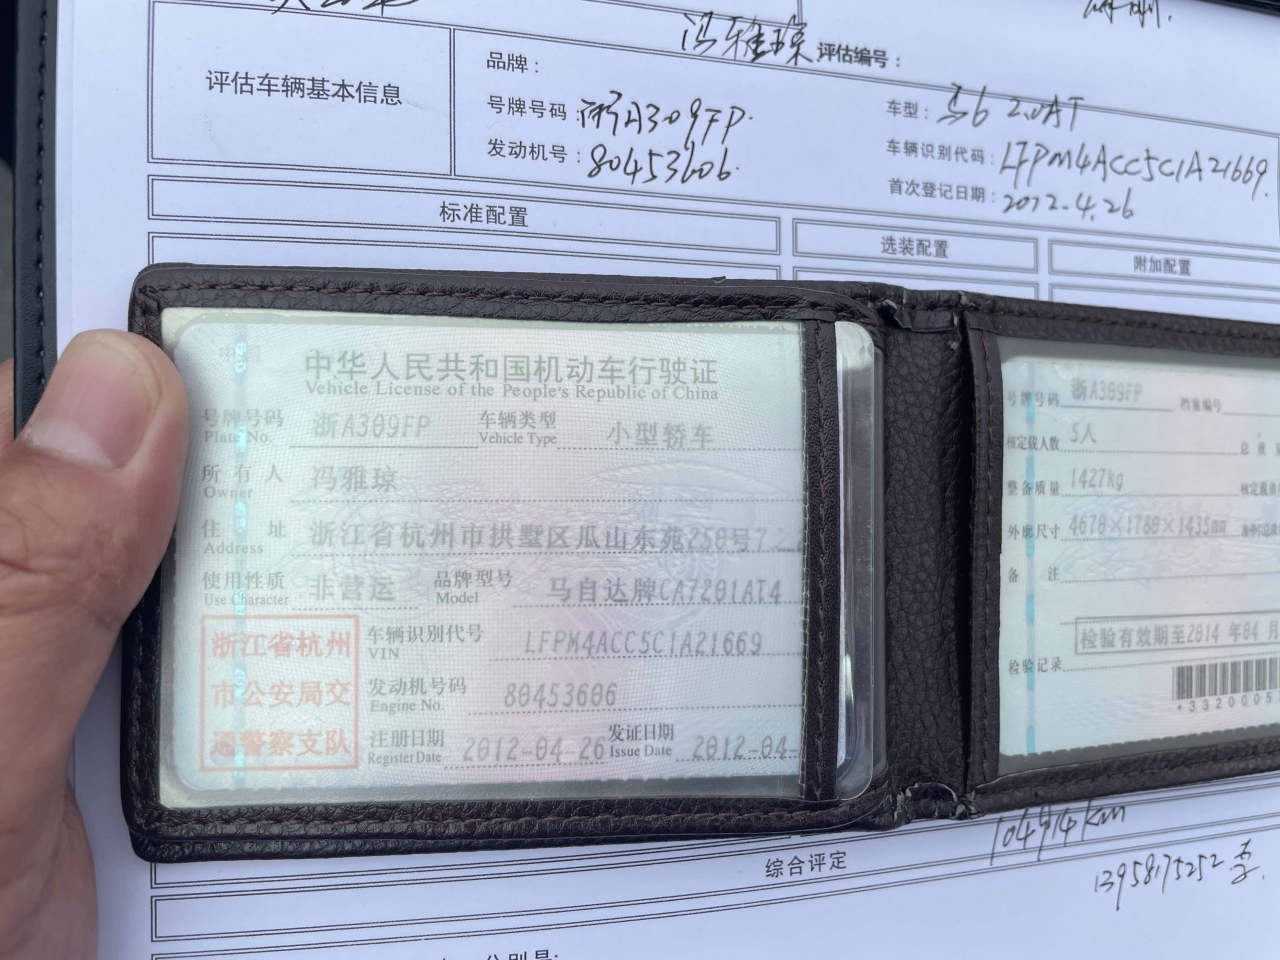 冯雅琼 评估编号：
评估车辆基本信息
品牌：
号牌号码：浙A309FP.
发动机号：80453606.
车型：马6 2.0AT
车辆识别代码：LFPM4ACC5C1A21669.
首次登记日期：2012.4.26
标准配置
选装配置
附加配置
中华人民共和国机动车行驶证
Vehicle License of the People's Republic of China
号牌号码 浙A309FP 车辆类型 小型轿车
Plate No. Vehicle Type
所有人 冯雅琼
Owner
住址 浙江省杭州市拱墅区瓜山东苑250号7
Address
使用性质 非营运 品牌型号 马自达牌CA7201AT4
Use Character Model
浙江省杭州
市公安局交
通警察支队
车辆识别代号 LFPM4ACC5C1A21669
VIN
发动机号码 80453606
Engine No.
注册日期 2012-04-26 发证日期 2012-04-
Register Date Issue Date
号牌号码 浙A309FP 档案编号
核定载人数 5人
整备质量 1427kg
外廓尺寸 4670×1780×1435mm
备注
检验有效期至2014年04月
检验记录
*3320005
104914km
综合评定
13958175252 李.